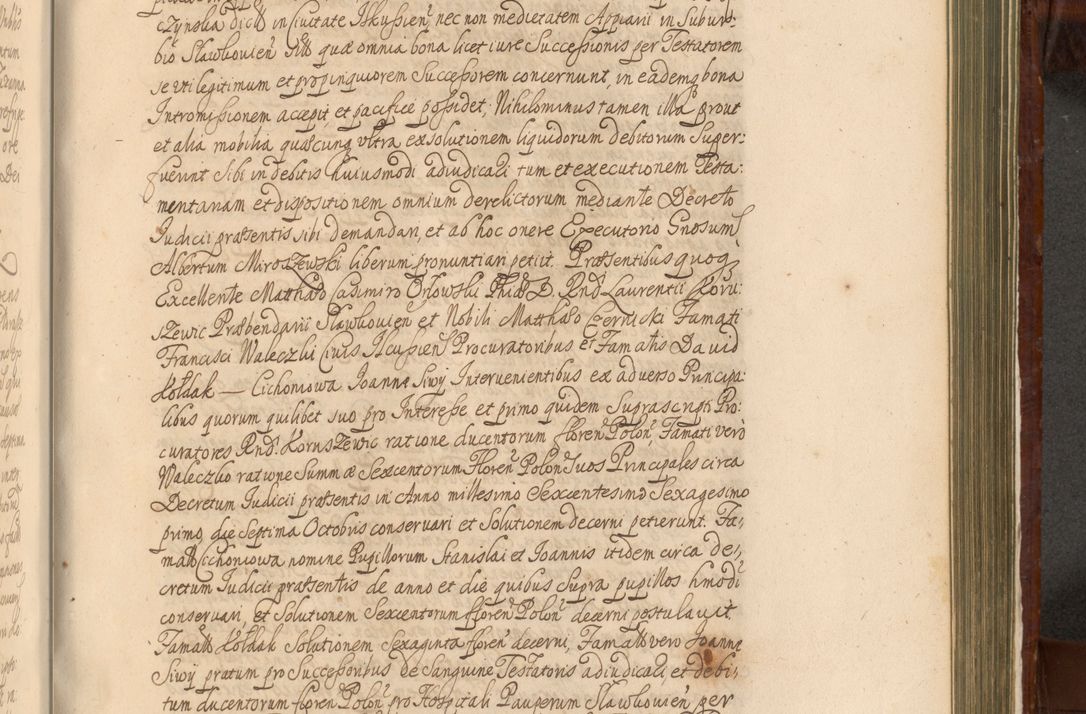 czynska dict in Civitate Ilkussien̄ nec non medietatem Appiarii in Subur:
bio Slawkovien̄ quæ omnia bona licet iure Successionis per Testatorem
se uti legitimum et propinquiorem Successorem concernunt, in eademq bona
Intromissionem accepit, et pacifice possidet, Nihilominus tamen illa prout
et alia mobilia quæcunq ultra exsolutionem liquidorum debitorum Super:
fuerint Sibi in debitis huiusmodi adiudicari tum et executionem Testa:
mentariam et dispositionem omnium derelictorum mediante Decreto
Iudicii præsentis sibi demandari, et ab hoc onere Executorio Gnosum
Albertum Miroszewski liberum pronuntiari petiit. Præsentibus quoq
Excellente Matthæo Casimiro Orłowski Phiæ D. Rnd Laurentii Koru:
szewic Præbendarii Slawkovien̄ et Nobili Matthæo Czernicki Famati
Francisci Waleczko Civis Ilcussien̄ Procuratoribus et Famatis David
Kołdak — Cichoniowa Ioanne Siwy Intervenientibus ex adverso Principa:
libus quorum quilibet suo pro Interesse et primo quidem Suprascripti Pro:
curatores Rnd. Koruszewic ratione ducentorum floren̄ Polon̄, Famati vero
Waleczko ratione Summæ Sexcentorum Floren̄ Polon̄ Suos Principales circa
Decretum Iudicii præsentis in Anno millesimo Sexcentesimo Sexagesimo
primo, die Septima Octobris conservari et Solutionem decerni petierunt. Fa:
mata Cichoniowa nomine Pupillorum, Stanislai et Ioannis itidem circa de:
cretum Iudicii præsentis de anno et die quibus Supra pupillos hmodi
conservari, et Solutionem Sexcentorum floren̄ Polon̄ decerni postulavit.
Famatus Kołdak Solutionem Sexaginta floren̄ decerni, Famatus vero Ioannes
Siwy pratum pro Successoribus de Sanguine Testatoris adiudicari, et debi:
tum ducentorum floren̄ Polon̄ pro Hospitali Pauperum Slawkovien̄ per